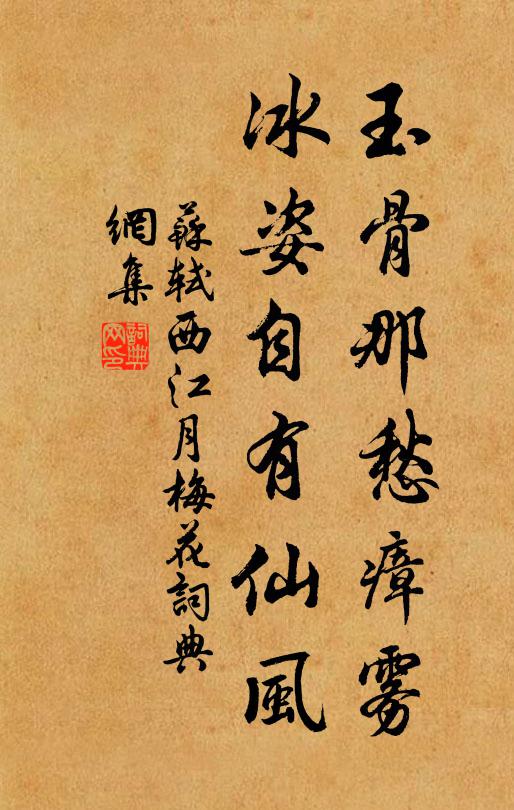 玉骨那愁瘴雾
冰姿自有仙風
蘇軾西江月梅花詞典
網集
詞典
网印